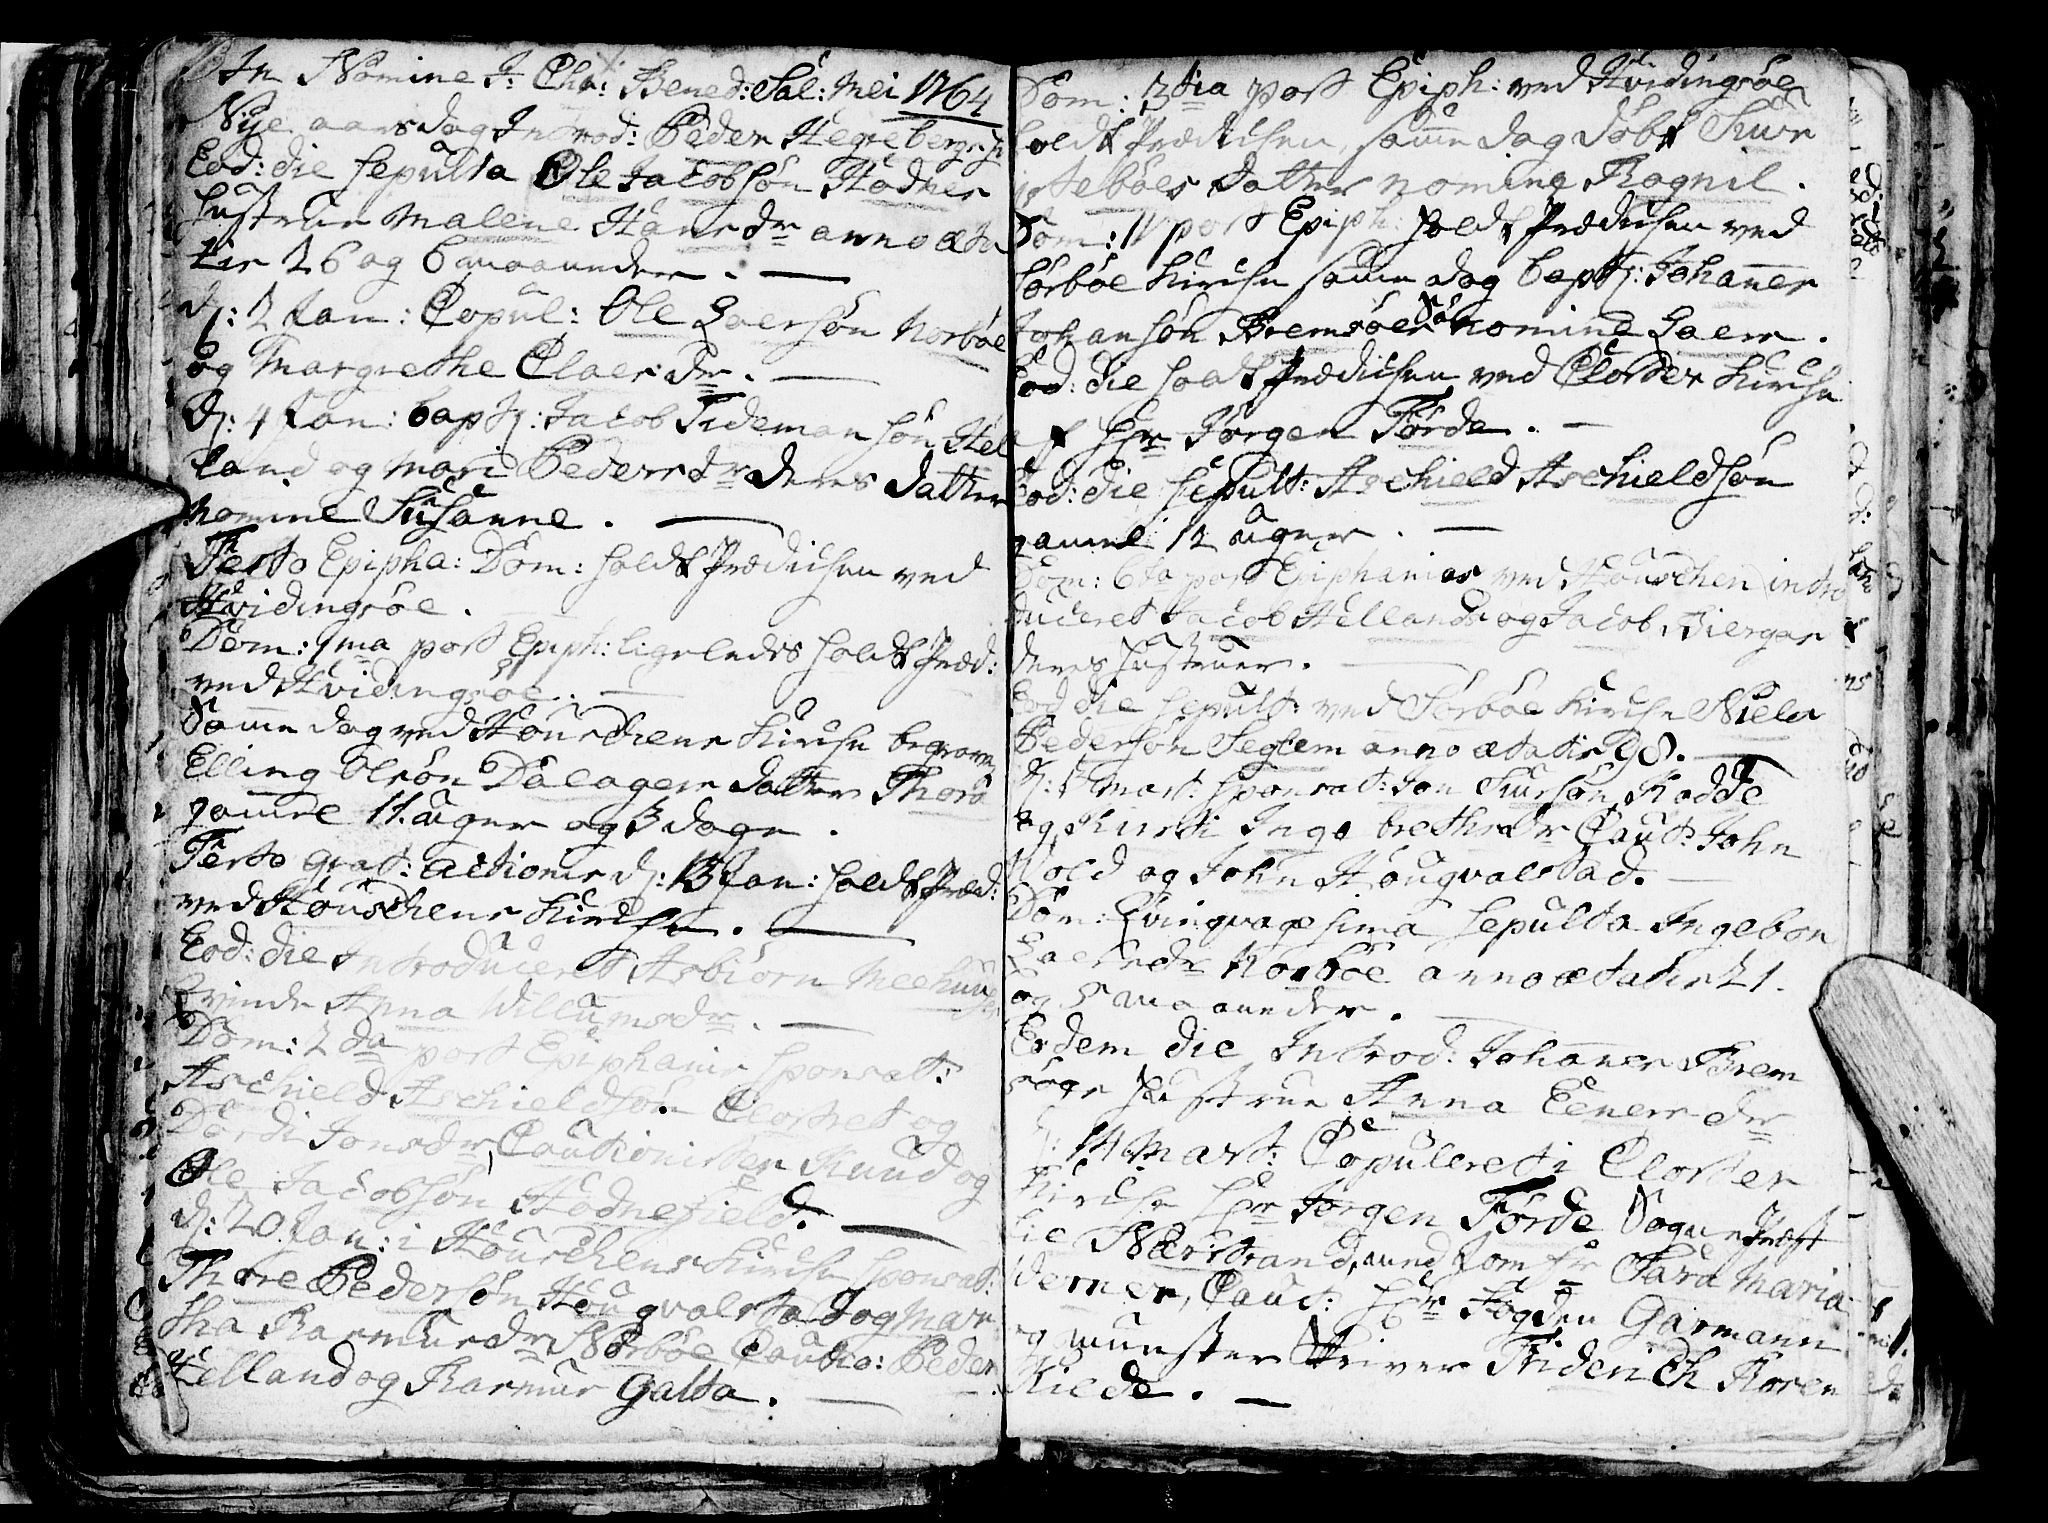 In Nomine J: Chr: Bened: Sal: Mei 1764
Nye aars dag Introd: Peder Hegrebergs H
Eod: die sepulta Ole Jacobsøn Hodnes
hustrue Malene Hans dr anno æta
tis 26 og 6 maaneder.
d: 2 Jan: Copul: Ole Laersøn Norbøe
og Margrethe Claes dr.
d: 4 Jan: bapt: Jacob Tidemansøn Hel
land og Mari Peders dr deres datter
nomine Susanne.
Festo Epipha: Dom: holdt Prædichen ved
Hvidingsøe.
Dom: 1ma post Epiph: ligeledes holdt Præd:
ved Hvidingsøe.
Samme dag ved Houschens Kirche begraven
Elling Olsøn Dalagers datter Thora
gammel 11 uger og 3 dage.
Festo grat: actionis d: 13 Jan: holdt Præd:
ved Houschens Kirche.
Eod: die Introduceret Asbiørn Meehuus
Qvinde Anna Willumsdr.
Dom: 2da post Epiphanis sponsat:
Aschield Aschieldsøn Clostret og
Dordi Jonsdr, Cautionister Knud og
Ole Jacobsøn Hodnefield.
d: 20 Jan: i Houschens Kirche sponsat:
Thore Pedersøn Hougvalstad og Mar
tha Rasmusdr Norbøe Cautio: Peder
Helland og Rasmus Galta.
Dom: 3tia post Epiph: ved Hvidingsøe
holdt Prædichen, samme dag døbt Siur
istebøes datter nomine Ragnil.
Dom: 4 post Epiph: holdt Prædichen ved
Sørbøe Kirche samme dag bapt: Johannes
Johansøn Bremsøes Søn nomine Laers.
Eod: die holdt Prædichen ved Closter Kirche
af Hr JørgenFørde.
Eod: die sepult: Aschield Aschieldsøn
gammel 12 uger.
Dom: 6ta post Epiphanias ved Houschen intro
duceret Jacob Hellands og Jacob Biergas
deres hustruer.
Eod die sepult: ved Sørbøe Kirche Niels
Pedersøn Seglem anno ætatis 98.
d: 1 Mart: sponsat: Jon Siursøn Kodde
og Kirsti Ingebrethsdr Caut: John
Vold og John Hougvalstad.
Dom: Qvinqvagesima sepulta Ingebor
Laersdr Norbøe anno ætatis 21.
og 5 maaneder.
Eodem die Introd: Johannes Brem
søes hustrue Anna Eenersdr
d: 14 Mart: Copuleret i Closter
Kirche Hr Jørgen Førde Sogne Præst
til Nærstrand, med Jomfr Sara Maria
demer, Caut: Hr Fogden Garmann
og munster skriver Friderich Rosen
Kilde.